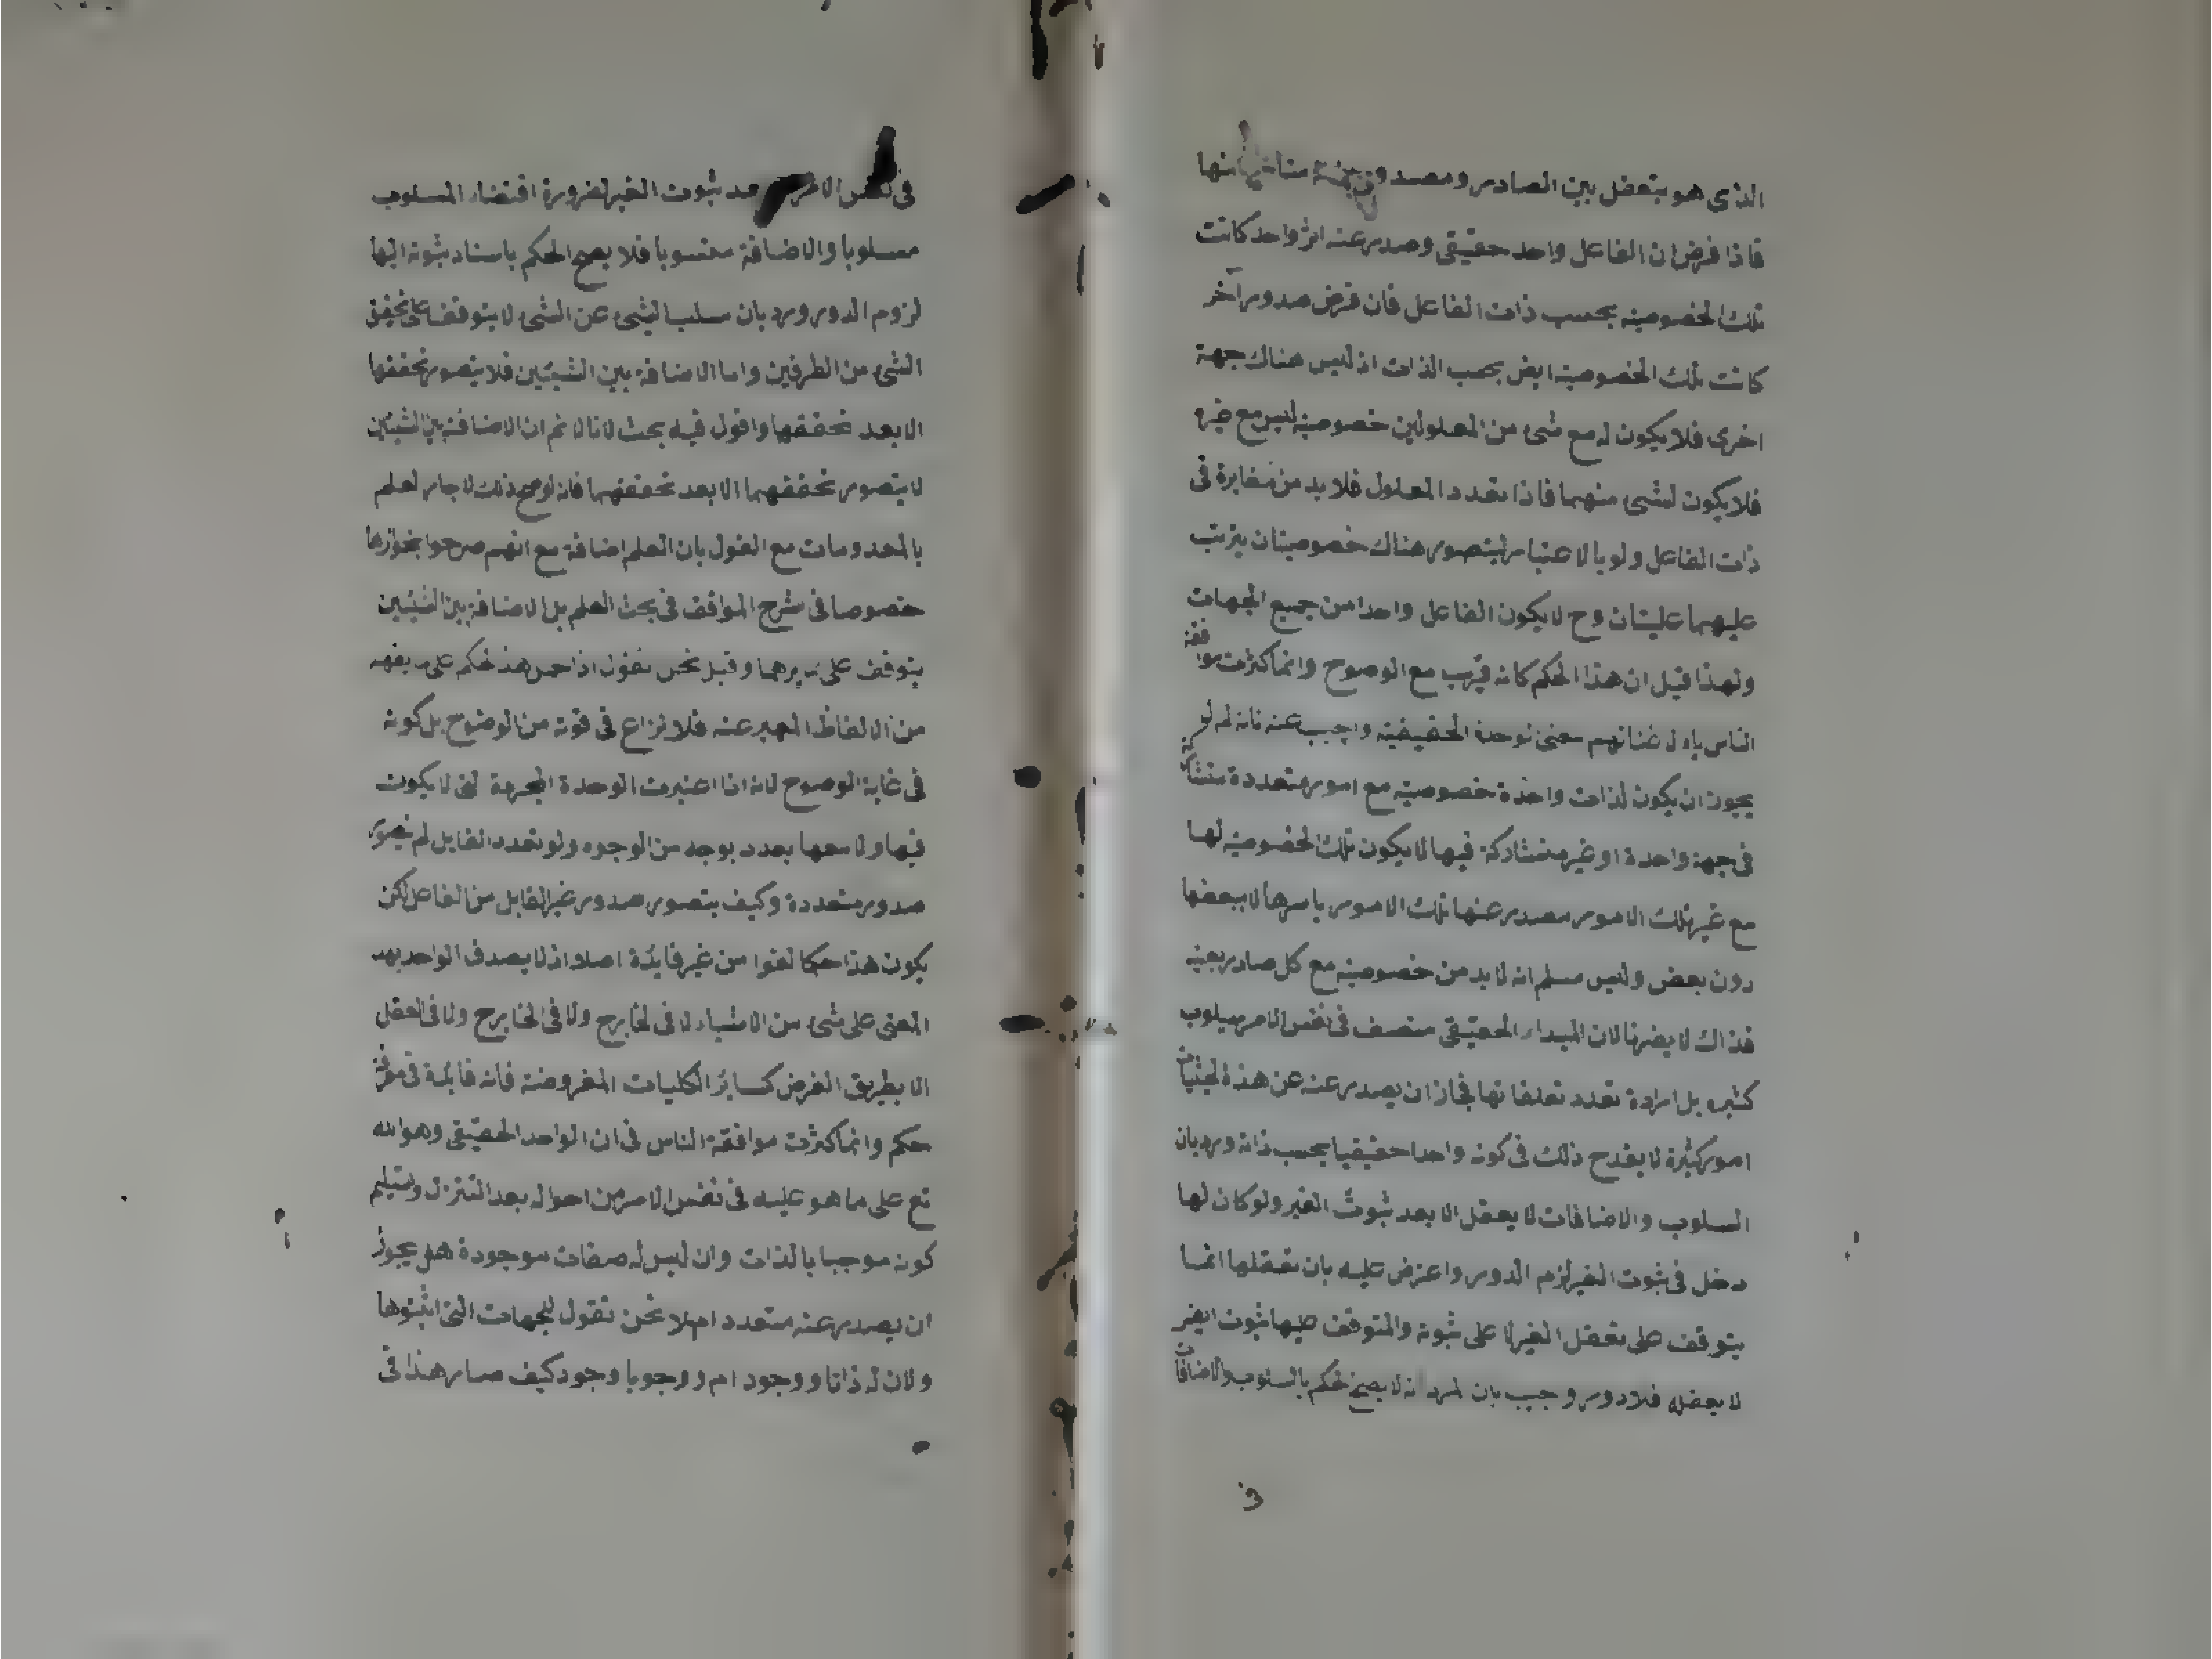 الذى هو يتعقل بين الصادر ومصدره
فاذا فرض ان الفاعل واحد حقيقى وصدر عنه اثر واحد كانت
تلك الخصوصية بحسب ذات الفاعل فان فرض صدور آخر
كانت تلك الخصوصية ايض بحسب الذات اذ ليس هناك جهة
اخرى فلا يكون له مع شئ من المعلولين خصوصية ليس مع غيره
فلا يكون لشئ منهما فاذا تعدد المعلول فلا بد من مغايرة فى
ذات الفاعل ولو بالاعتبار ليتصور هناك خصوصيتان يترتب
عليهما عليتان وح لا يكون الفاعل واحدا من جميع الجهات
ولهذا قيل ان هذا الحكم كانه قريب مع الوضوح وانما كثرت موافقة
الناس معنى لوحدة الحقيقية واجيب عنه بانه لم لم
يجوز ان يكون لذات واحدة خصوصية مع امور متعددة متشاركة
فى جهة واحدة او غير متشاركة فيها لا يكون تلك الخصوصية لها
مع غير تلك الامور مصدر عنها تلك الامور باسرها لا ببعضها
دون بعض وليس مسلم انه لا بد من خصوصية مع كل صادر بعينه
فذاك لا يضرنا لان المبداء الحقيقى متصف فى نفس الامر بسلوب
كثيره بل ارادة تعدد تعلقاتها فجاز ان يصدر عنه عن هذه الحيثيات
امور كثيرة لا يقدح ذلك فى كونه واحدا حقيقيا بحسب ذاته ورد بان
السلوب والاضافات لا يعقل الا بعد ثبوت الغير ولو كان لها
دخل فى ثبوت الغير لزم الدور واعترض عليه بان تعقلها انما
يتوقف على تعقل الغير لا على ثبوته والمتوقف عليها ثبوت الغير
لا تعقله فلا دور وجيب بان لمراد انه لا يصح لحكم بالسلوب والاضافات
فى نفس الامر بعد ثبوت الغير لضرورة اقتضاء المسلوب
مسلوبا والاضافة منسوبا فلا يصح الحكم باسناد ثبوته اليها
لزوم الدور ورد بان سلب الشئ عن الشئ لا يتوقف على تحقق
الشئ من الطرفين واما الاضافة بين الشيئين فلا يتصور تحققها
الا بعد تحققها واقول فيه بحث لانا لا نم ان الاضافة بين الشيئين
لا يتصور تحققهما الا بعد تحققهما فانه لو صح ذلك لا جاز لعلم
بالمعدومات مع القول بان العلم اضافة مع انهم صرحوا بجوازها
خصوصا فى شرح المواقف فى بحث العلم بل الاضافة بين الشيئين
يتوقف على وقيل نحن نقول اذا هذ لحكم على
من الالفاظ المعبر عنه فلا نزاع فى قوته من الوضوح بل كونه
فى غاية الوضوح لانه اذا اعتبرت الوحدة المجردة لتى لا يكون
فيها ولا معها تعدد بوجه من الوجوه ولو تعدد القابل لم يتصور
صدور متعددة وكيف يتصور صدور غير القابل من الفاعل لكن
يكون هذا حكما لغوا من غير فايدة اصلا اذ لا يصدق الواحد بهذ
المعنى على شئ من الاشياء لا فى لخارج ولا فى الخارج ولا فى العقل
الا بطريق الفرض كسائر الكليات المفروضة فانه فايدة فى
حكم وانما كثرت موافقة الناس فى ان الواحد الحقيقى وهو الله
تع على ما هو عليه فى نفس الامر من احواله بعد التنزل وتسليم
كونه موجبا بالذات وان ليس له صفات موجودة هل يجوز
ان يصدر عنه متعدد ام لا نحن نقول للجهات التى اثبتوها
ولان له ذاتا ووجود ام ووجوبا وجود كيف صار هذا فى